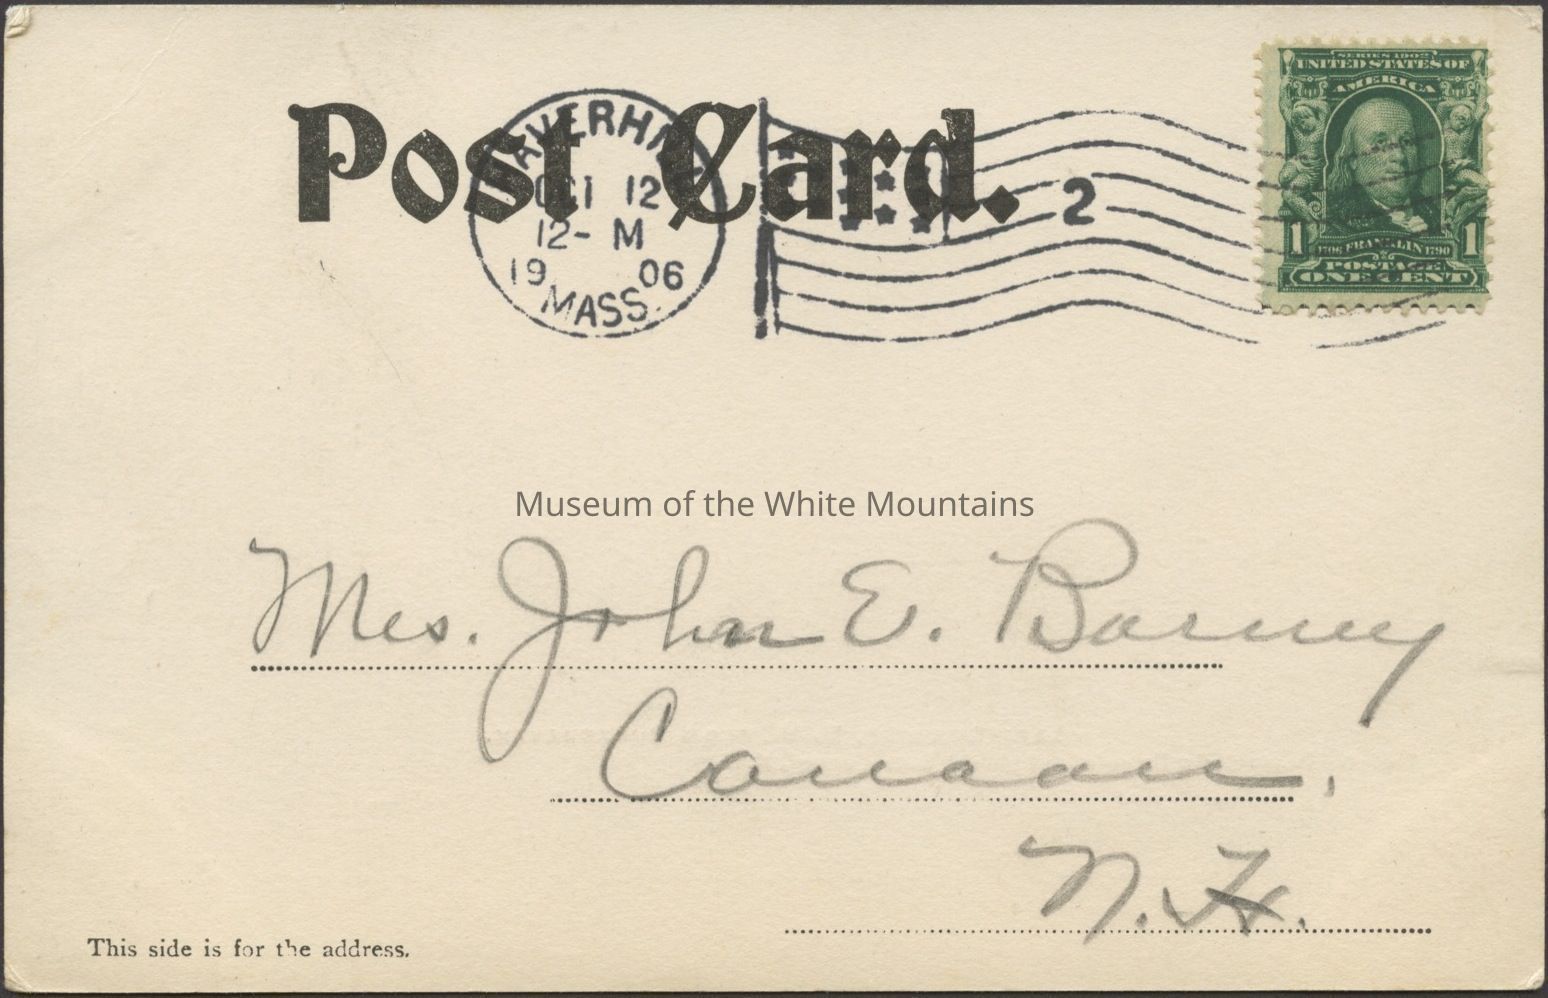 Post Card.
HAVERHILL
OCT 12
12- M
19 06
MASS.
2
SERIES 1902
UNITED STATES OF
AMERICA
1 1706 FRANKLIN 1790 1
POSTAGE
ONE CENT
Museum of the White Mountains
Mrs. John E. Barney
Canaan,
N.H.
This side is for the address.